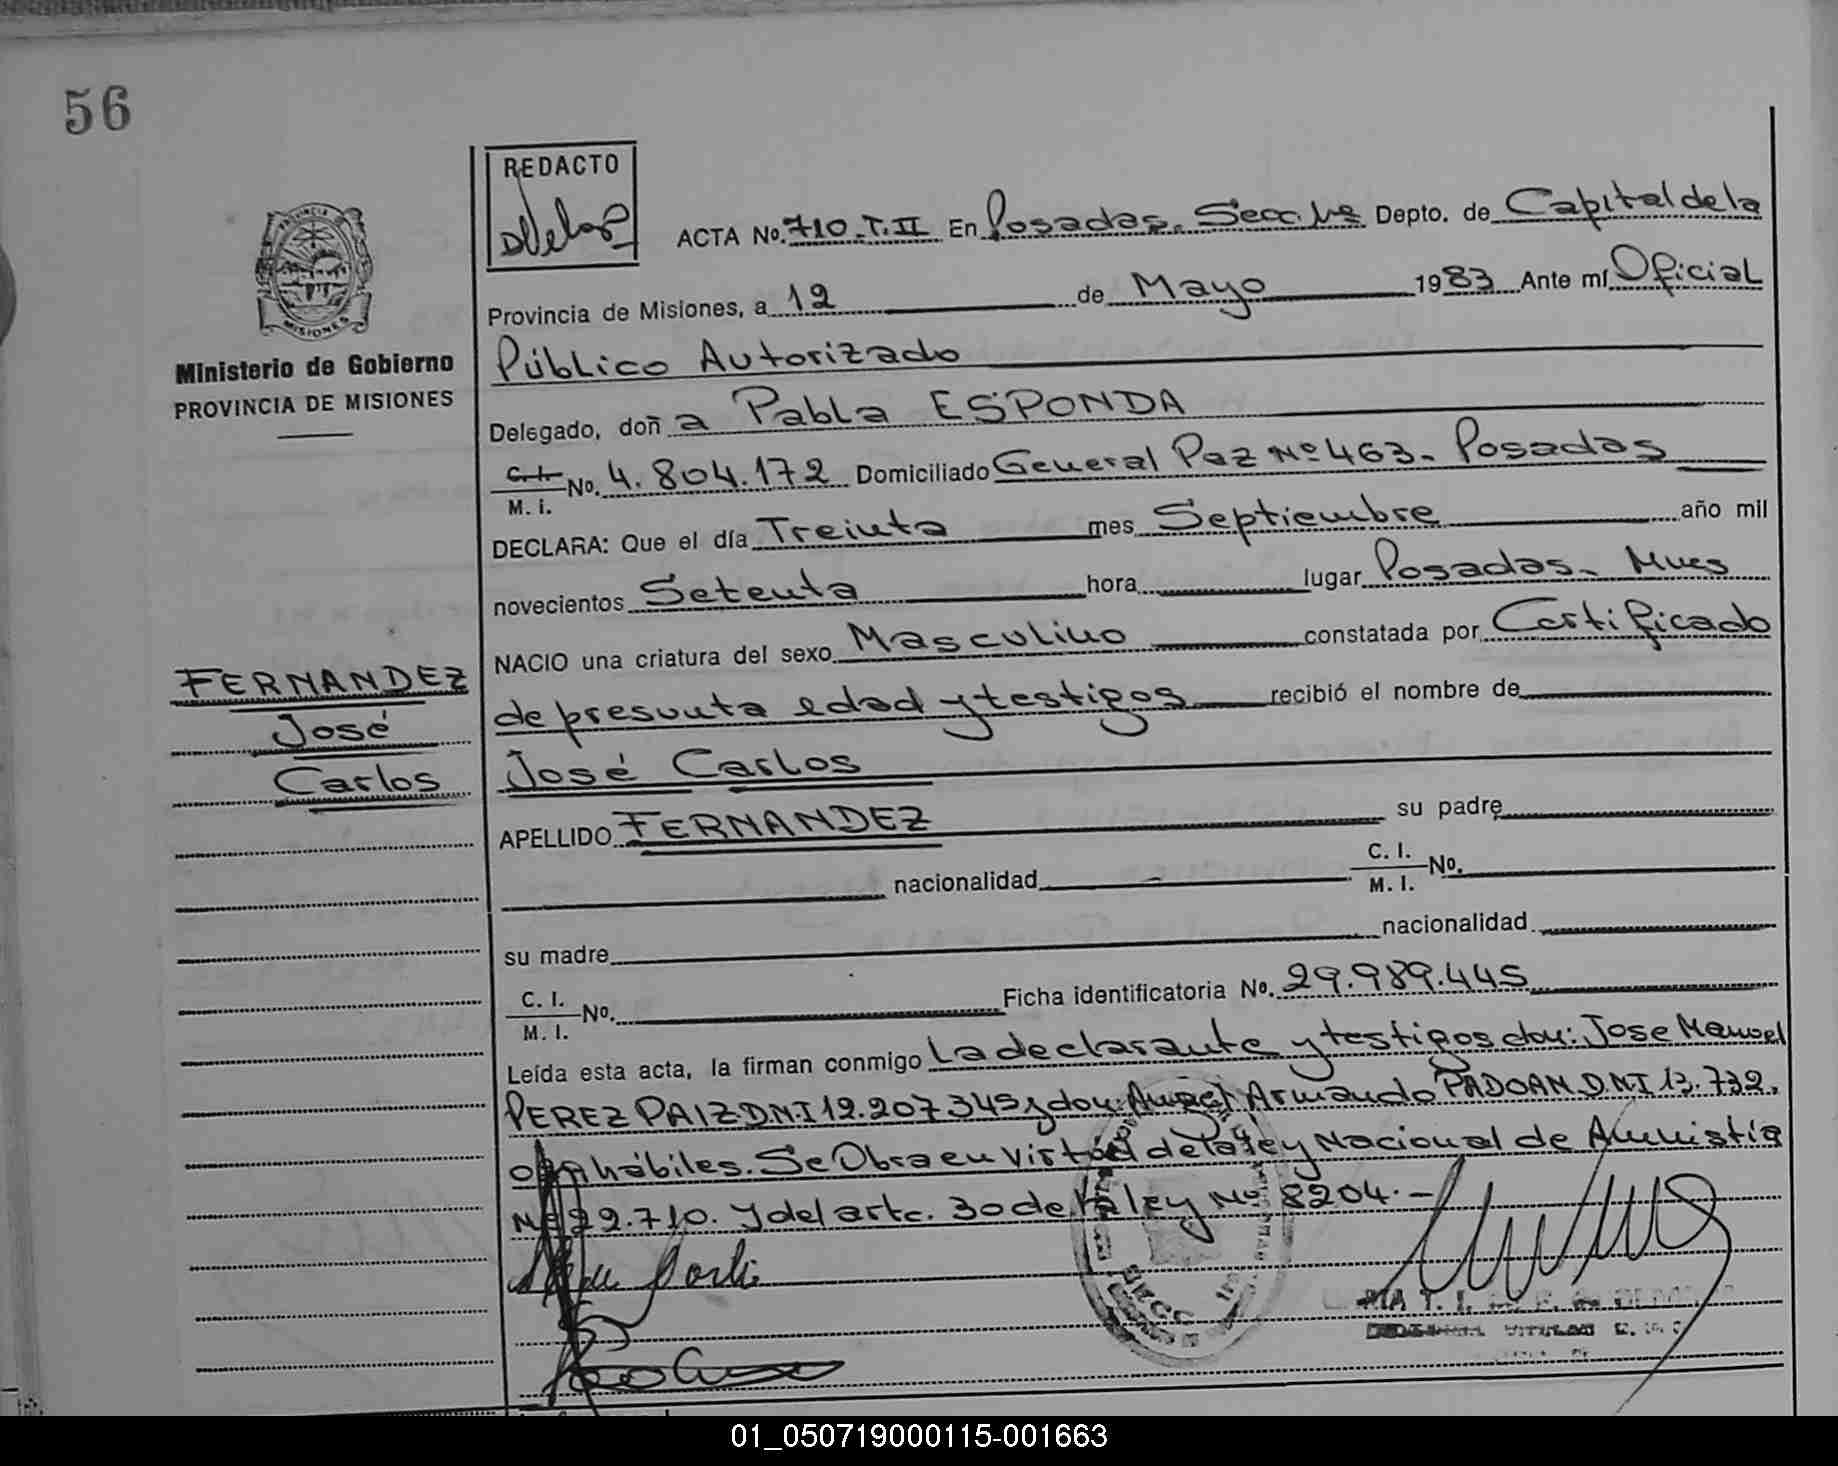 56
REDACTO
ACTA No. 710. T. II En Posadas. Secc. 1ra Depto. de Capital de la
Provincia de Misiones, a 12 de Mayo 1983 Ante mí Oficial
Público Autorizado
Delegado, doñ a Pabla ESPONDA
C. I.
M. I. No. 4.804.172 Domiciliado General Paz Nº 463. Posadas
DECLARA: Que el día Treinta mes Septiembre año mil
novecientos Setenta hora lugar Posadas. Mnes
NACIO una criatura del sexo Masculino constatada por Certificado
de presunta edad y testigos recibió el nombre de
José Carlos
APELLIDO FERNANDEZ su padre
nacionalidad C. I.
M. I. No.
su madre nacionalidad
C. I.
M. I. No. Ficha identificatoria No. 29.989.445
Leída esta acta, la firman conmigo La declarante y testigos don: Jose Manuel
PEREZ PAIZ D.N.I 12.207.345 y don: Angel Armando PADOAN D.N.I 13.732.
hábiles. Se Obra en virtud de la ley Nacional de Amnistía
Nº 22.710. y del artc. 30 de la ley Nº 8204.-
Ministerio de Gobierno
PROVINCIA DE MISIONES
FERNANDEZ
José
Carlos
PROVINCIA
MISIONES
01_050719000115-001663